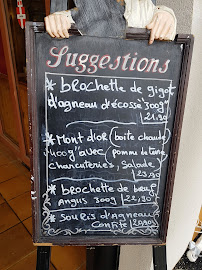 Suggestions
* brochette de gigot
d'agneau d'écosse 300g
21,90
* Mont d'or (boite chaude
400g avec pomme de terre
charcuteries, Salade
23,90
* brochette de bœuf
Angus 300g 22,90
* Souris d'agneau
Confite 20,90